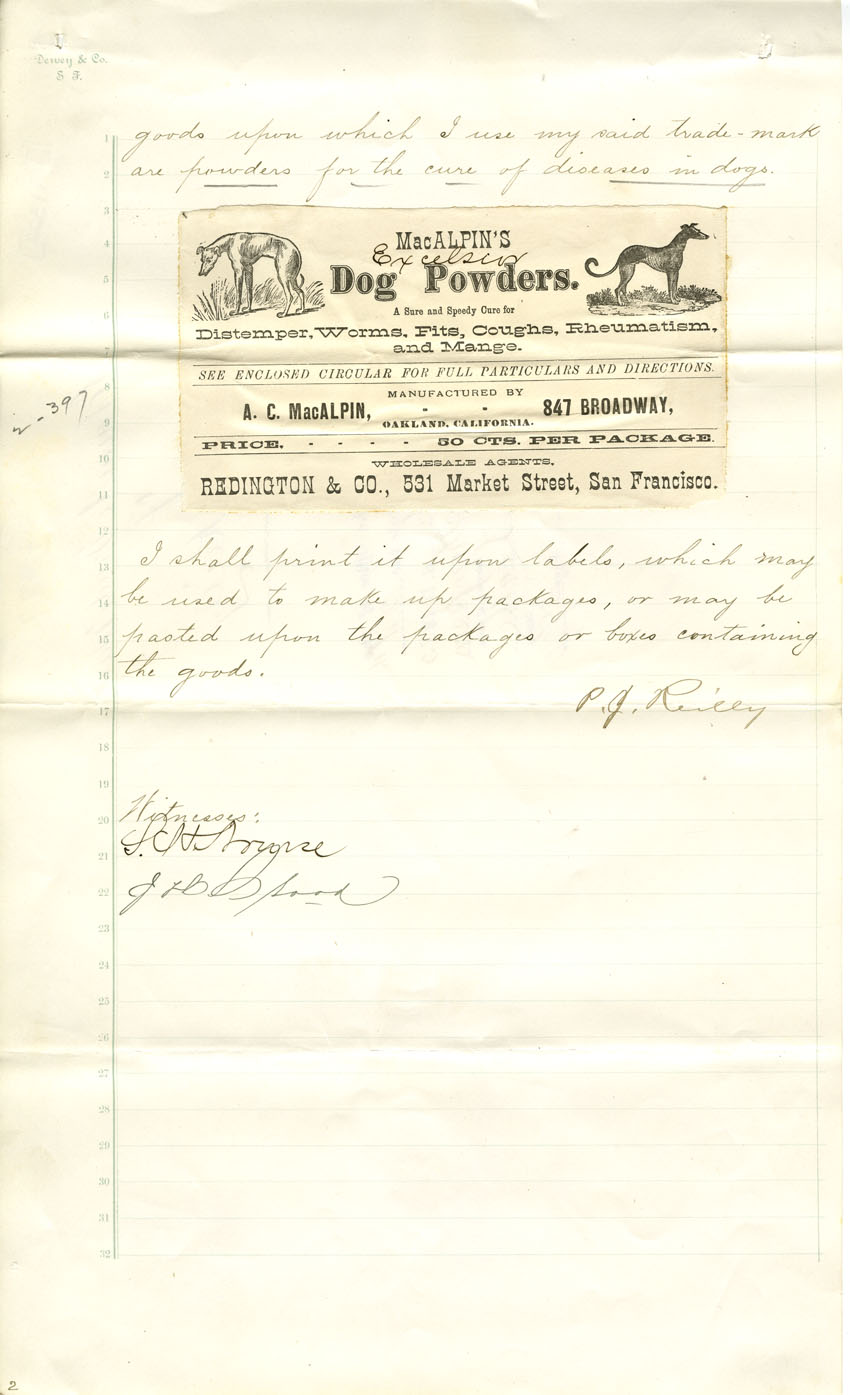 Dewey & Co.
S F.
1 goods upon which I use my said trade-mark
2 are powders for the cure of diseases in dogs.
3
4 MacALPIN'S
Excelsior
5 Dog Powders.
6 A Sure and Speedy Cure for
Distemper, Worms, Fits, Coughs, Rheumatism,
7 and Mange.
SEE ENCLOSED CIRCULAR FOR FULL PARTICULARS AND DIRECTIONS.
8
MANUFACTURED BY
A. C. MacALPIN, - - 847 BROADWAY,
9 OAKLAND, CALIFORNIA.
PRICE, - - - - 50 CTS. PER PACKAGE.
10 WHOLESALE AGENTS,
REDINGTON & CO., 531 Market Street, San Francisco.
11
12
13 I shall print it upon labels, which may
14 be used to make up packages, or may be
15 pasted upon the packages or boxes containing
16 the goods.
P. J. Reilly
17
18
19
20 Witnesses:
21 S. H. Nourse
22
23
24
25
26
27
28
29
30
31
32
-397
2